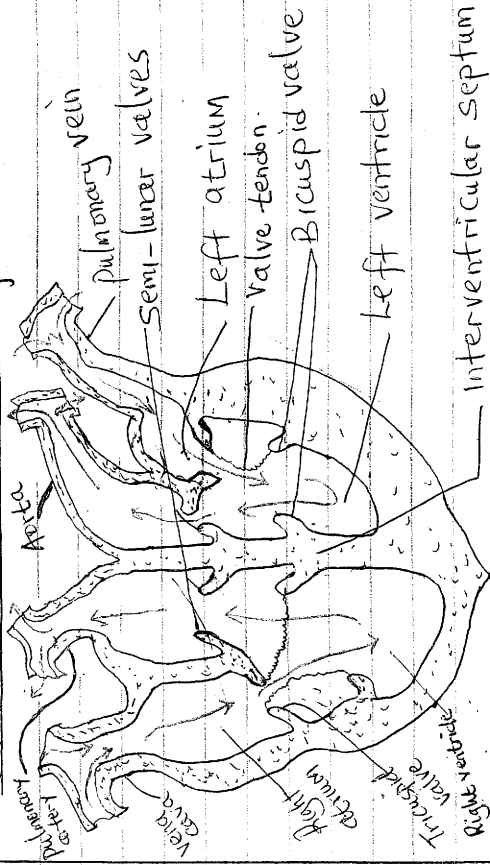 Pulmonary vein
Semi-lunar valves
Left atrium
Valve tendon.
Bicuspid valve
Left ventricle
Interventricular septum
Aorta
Pulmonary
artery
vena
cava
Right
atrium
Tricuspid
valve
Right ventricle